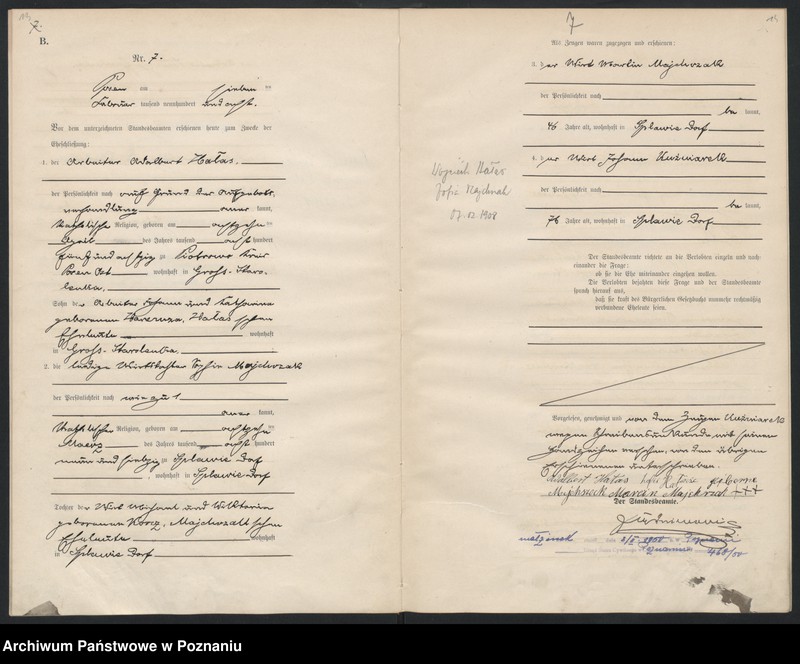 B.
Nr. 7.
Posen am sieben ten
Februar tausend neunhundert und acht.
Vor dem unterzeichneten Standesbeamten erschienen heute zum Zwecke der
Eheschließung:
1. der Arbeiter Adalbert Hałas.
der Persönlichkeit nach auf Grund der Aufgebots-
verhandlung aner kannt,
katholischer Religion, geboren am achtzehn ten
April des Jahres tausend acht hundert
fünf und achtzig zu Piotrowo Kreis
Posen Ost wohnhaft in Groß-Staro-
lenka.
Sohn des Arbeiter Johann und Katharina
geborenen Hałas schen
Eheleute wohnhaft
in Groß-Starolenka.
2. die ledige Wirtstochter Sophie Majchrzak
der Persönlichkeit nach wie zu 1
aner kannt,
katholischer Religion, geboren am achtzehn ten
Maerz des Jahres tausend acht hundert
neun und siebzig zu Splawie Dorf
, wohnhaft in Splawie Dorf
Tochter des Wirt Michael und Viktoria
geborenen Majchrzak schen
Eheleute wohnhaft
in Splawie Dorf
Wojciech Hałas
Zofia Majchrzak
07.02.1908
7
Als Zeugen waren zugezogen und erschienen:
3. der Wirt Martin Majchrzak
der Persönlichkeit nach
be kannt,
46 Jahre alt, wohnhaft in Splawie Dorf
4. der Wirt Johann Kuźniarek
der Persönlichkeit nach
be kannt,
76 Jahre alt, wohnhaft in Splawie Dorf
Der Standesbeamte richtete an die Verlobten einzeln und nach-
einander die Frage:
ob sie die Ehe miteinander eingehen wollen.
Die Verlobten bejahten diese Frage und der Standesbeamte
sprach hierauf aus,
daß sie kraft des Bürgerlichen Gesetzbuchs nunmehr rechtmäßig
verbundene Eheleute seien.
Vorgelesen, genehmigt und von dem Zeugen Kuźniarek
wegen Schreibensunkunde mit seinem
Handzeichen versehen, von den übrigen
Erschienenen unterschrieben.
Adalbert Hałas Zofia Hałas geborne
Majchrzak Marcin Majchrzak +++
Der Standesbeamte.
Archiwum Państwowe w Poznaniu